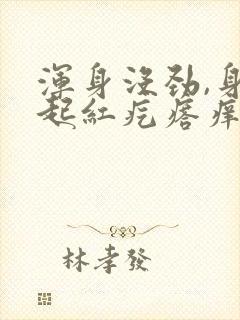 渾身沒勁,身
起紅疙瘩痒
林孝發